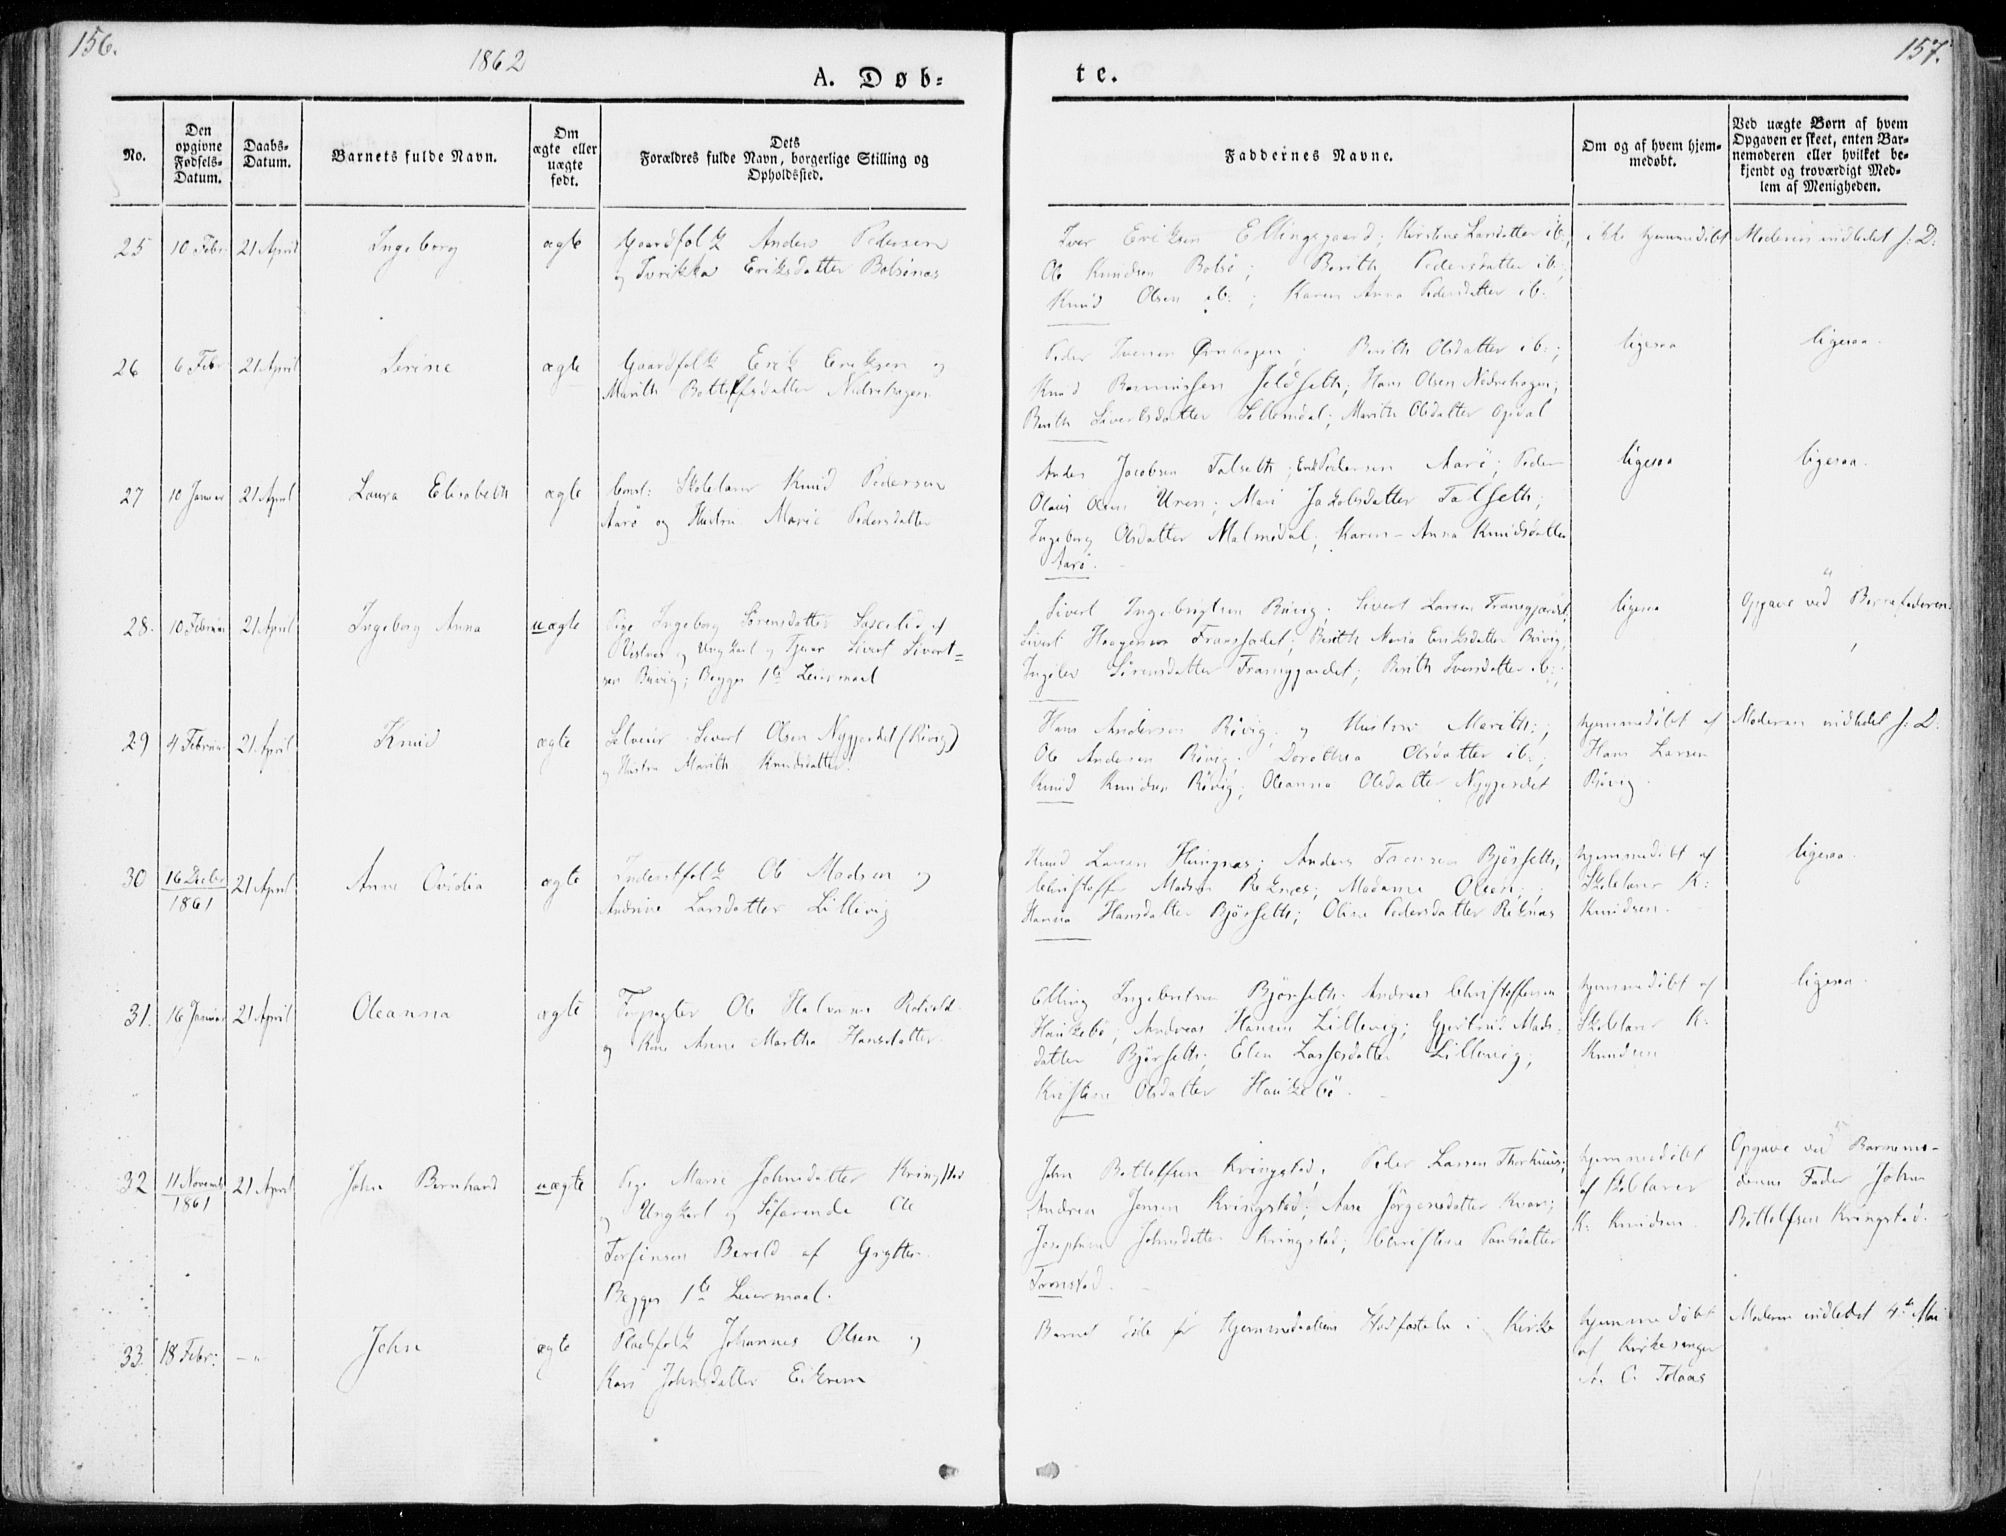 156.
1862
A. Døb=
te.
157.
No.
Den
opgivne
Fødsels-
Datum.
Daabs-
Datum.
Barnets fulde Navn.
Om
ægte eller
uægte
født.
Dets
Forældres fulde Navn, borgerlige Stilling og
Opholdssted.
Faddernes Navne.
Om og af hvem hjem-
medøbt.
Ved uægte Børn af hvem
Opgaven er skeet, enten Bar-
nemoderen eller hvilket be-
kjendt og troværdigt Med-
lem af Menigheden.
25
10 Febr
21 April
Ingeborg
ægte
Gaardfolk Anders Pedersen
og Eriksdatter Bolsönæs
Iver Eriksen Ellingsgaard; Kirstine Larsdatter ib:;
Ole Knudsen Bolsö; Berith Pedersdatter ib:;
Knud Olsen ib:; Karen Anna Pedersdatter ib:
ikke hjemmedöbt
Moderen indledet s: D:
26
6 Febr
21 April
Serine
ægte
Gaardfolk Erik Eriksen og
Marith Bottolfsdatter Nedrehagen
Peder Iversen Örnhagen; Berith Olsdatter ib:;
Knud Rasmussen Jeldseth; Hans Olsen Nedrehagen;
Berith Sivertsdatter Sollemdal; Marith Olsdatter Opdal
ligesaa
ligesaa.
27
10 Januar
21 April
Laura Elisabeth
ægte
Const: Skolelærer Knud Pedersen
Aarö og Hustru Marie Pedersdatter
Anders Jacobsen Talseth; Erik Pedersen Aarö; Peder
Olaus Olsen Uren; Mari Jakobsdatter Talseth;
Ingeborg Olsdatter Malmedal; Karen-Anna Knudsdatter
Aarö.
ligesaa
ligesaa.
28.
10 Februar
21 April
Ingeborg Anna
uægte
Pige Ingeborg Sörensdatter af
og Ungkarl og Tjener Sivert Sivert=
sen Rövig; Begges 1te Leiermaal
Sivert Ingebrigtsen Rövig; Sivert Larsen Framgjerdet;
Sivert Haagensen; Berith Maria Eriksdatter Rövig;
Ingeborg Sörensdatter Framgjerdet; Berith Iversdatter ib:;
ligesaa
Opgave ved Barnefaderen
29
4 Februar
21 April
Knud
ægte
Selveier Sivert Olsen Nygjerdet (Rövig)
og Hustru Marith Knudsdatter.
Hans Andersen Rövig og Hustru Marith;
Ole Andersen Rövig; Dorothea Olsdatter ib:;
Knud Knudsen Rövig; Oleanna Olsdatter Nygjerdet
hjemmedöbt af
Hans Larsen
Rövig.
Moderen indledet s: D:
30
16 Decbr
1861
21 April
Anne Ovidia
ægte
Inderstfolk Ole Madsen og
Andrine Larsdatter Lillevig
Knud Larsen Hungnæs; Anders Bjørseth;
Christoffer Madsen Reknæs; Madame Olsen;
Hanna Hansdatter Bjørseth; Oline Pedersdatter Reknæs
hjemmedöbt af
Skolelærer K:
Knudsen.
ligesaa.
31.
16 Januar
21 April
Oleanna
ægte
Forpagter Ole Halvorsen
og Kone Anne Martha Hansdatter.
Elling Ingebretsen Bjørseth; Andreas Christoffersen
Haukebö; Andreas Hansen Lillevig; Gjertrud Mads-
datter Bjørseth; Elen Lassesdatter Lillevig;
Kristine Olsdatter Haukebö.
hjemmedöbt af
Skolelærer K:
Knudsen
ligesaa.
32
11 Novemb
1861
21 April
John Bernhard
uægte
Pige Marie Johnsdatter Kringstad
og Ungkarl og Söfarende Ole
Torsinsen Berild af Grytten.
Begges 1te Leiermaal.
John Bottolfsen Kringstad; Peder Larsen Thorhuus;
Andreas Jensen Kringstad; Aase Jørgensdatter Kvam;
Josephine Johnsdatter Kringstad; Christine Paulsdatter
Tornstad.
hjemmedöbt
af Skolelærer
K: Knudsen.
Opgave ved Barnemo-
derens Fader John
Bottolfsen Kringstad.
33.
18 Febr:
-"
John
ægte
Pladsfolk Johannes Olsen og
Kari Johnsdatter Eikrem
Barnet döde før Hjemmedaabens Stadfæstelse i Kirke
hjemmedöbt
af Kirkesanger
C: Tolaas
Moderen indledet 4de Mai